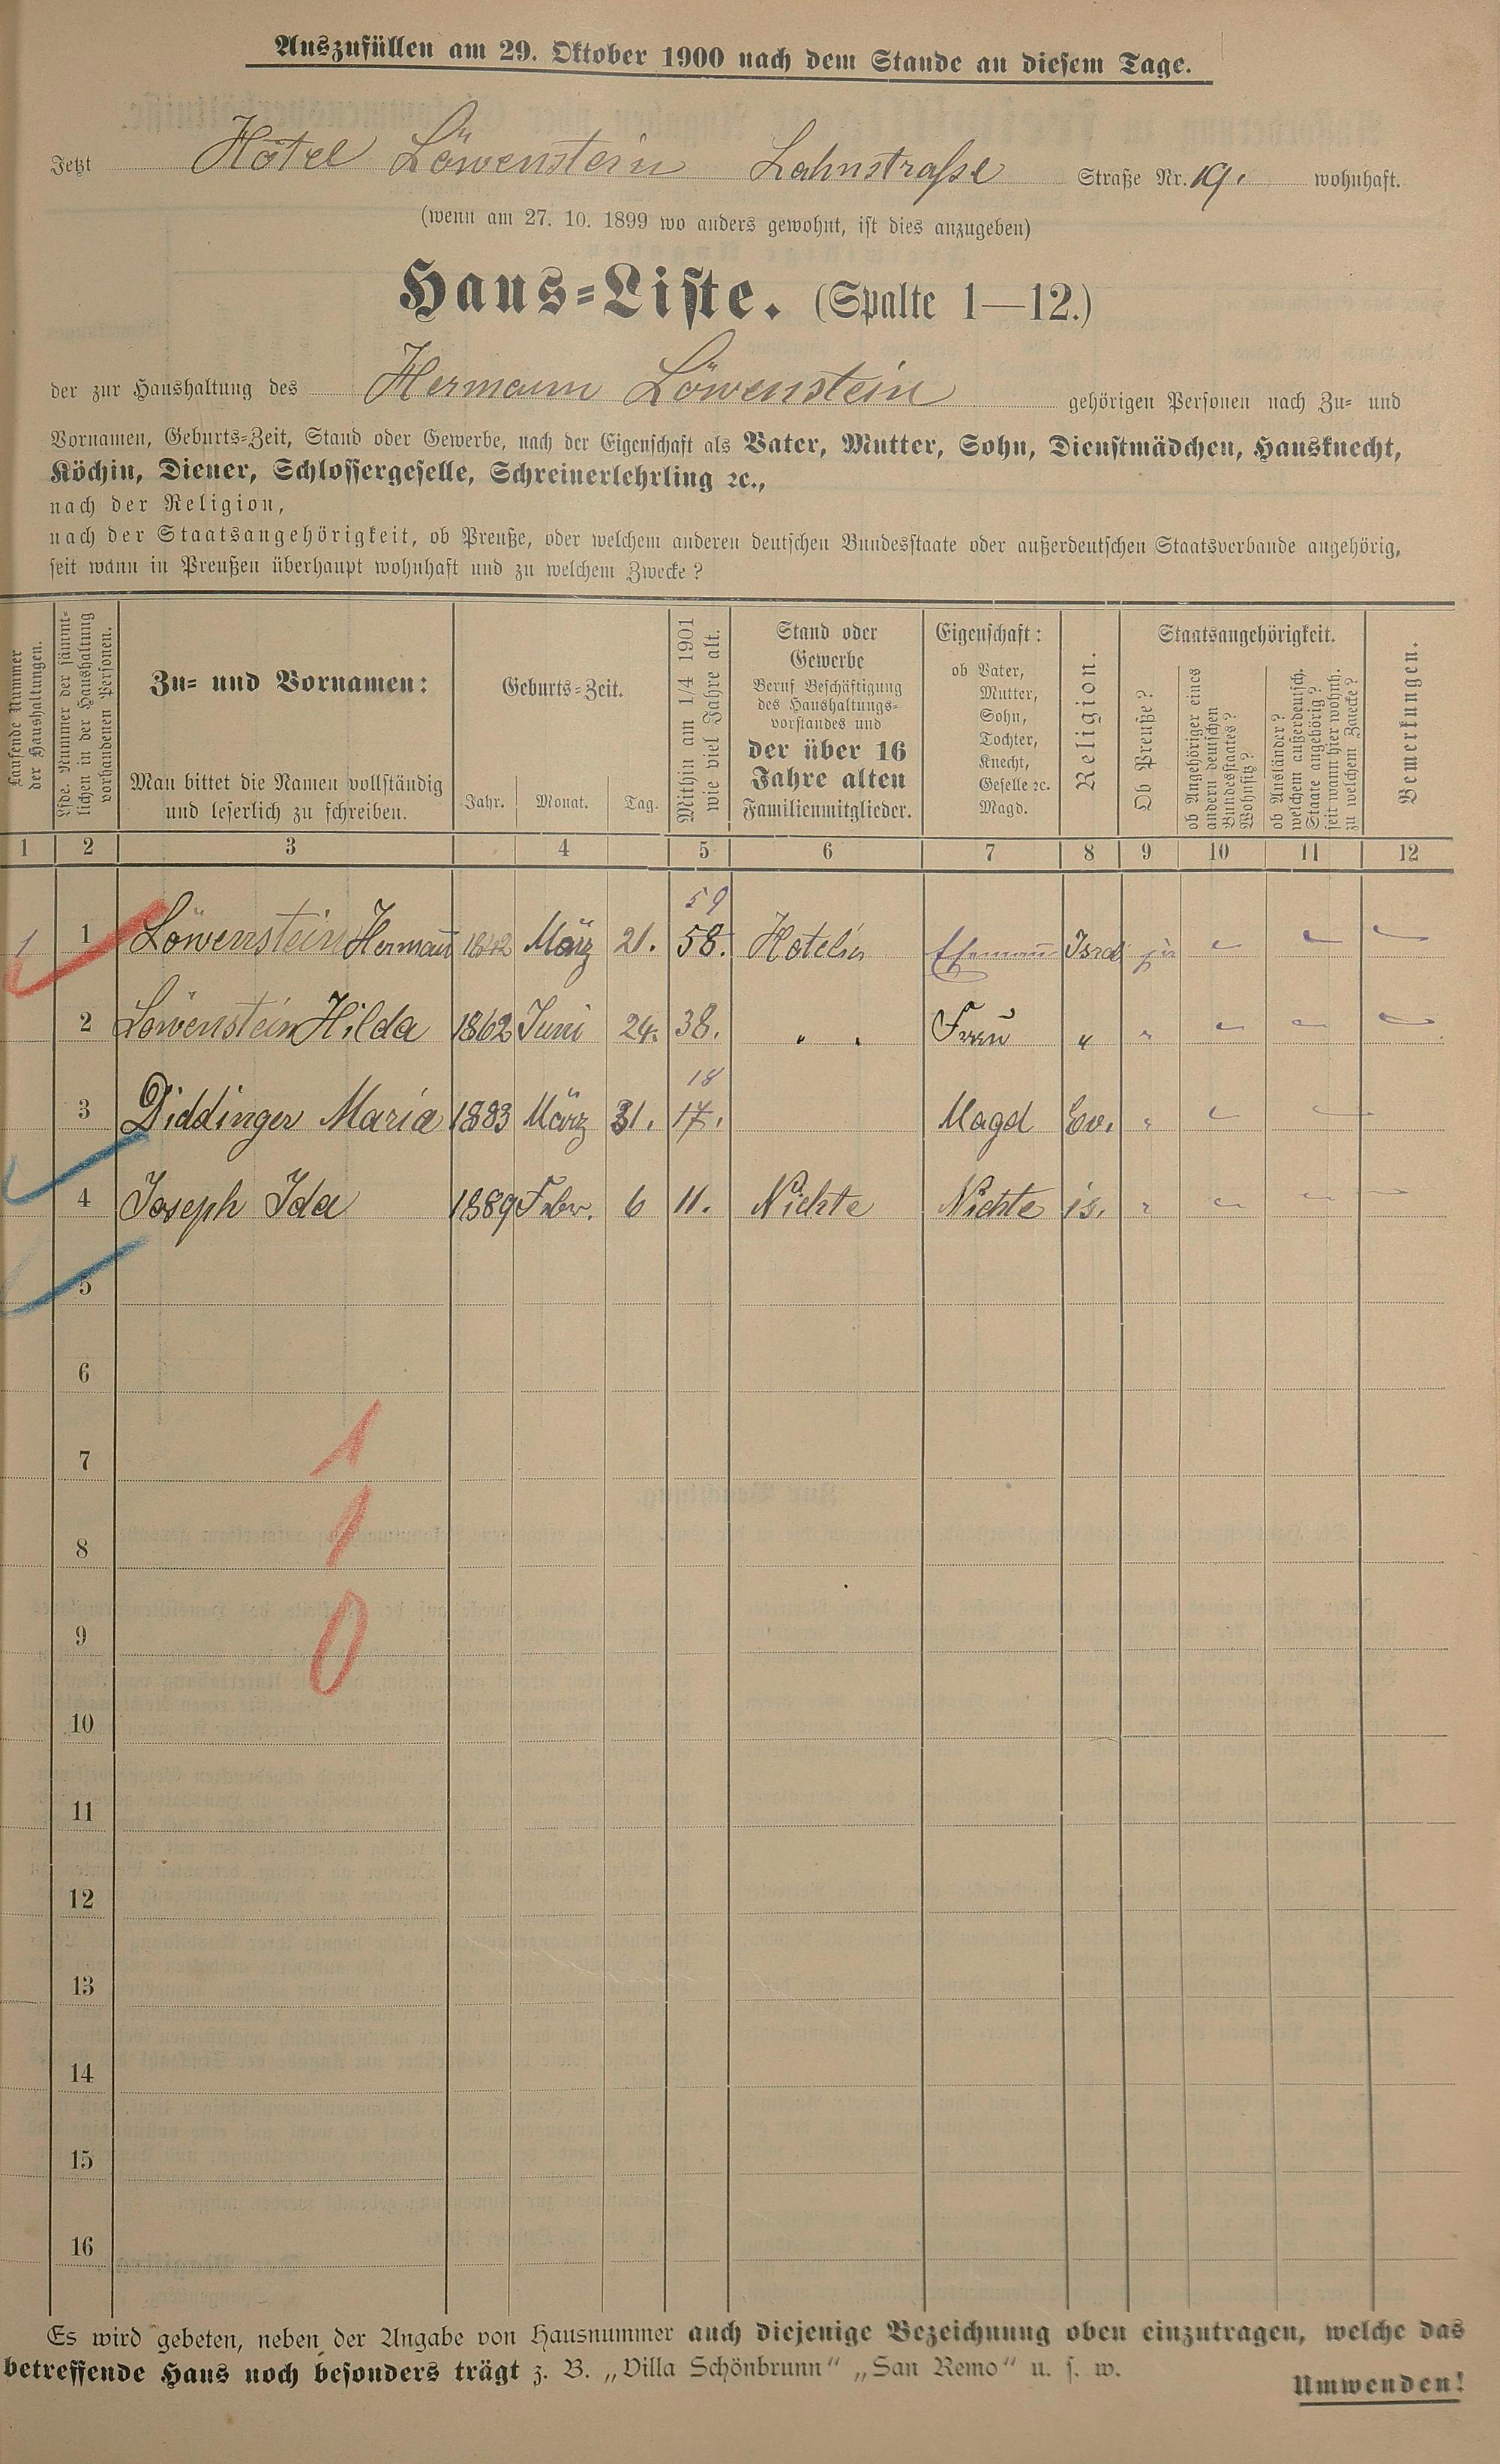 Auszufüllen am 29. Oktober 1900 nach dem Stande an diesem Tage.
Jetzt Hôtel Löwenstein Lahnstraße Straße Nr. 19. wohnhaft.
(wenn am 27. 10. 1899 wo anders gewohnt, ist dies anzugeben)
Haus-Liste. (Spalte 1—12.)
der zur Haushaltung des Hermann Löwenstein gehörigen Personen nach Zu- und
Vornamen, Geburts-Zeit, Stand oder Gewerbe, nach der Eigenschaft als Vater, Mutter, Sohn, Dienstmädchen, Hausknecht,
Köchin, Diener, Schlossergeselle, Schreinerlehrling ꝛc.,
nach der Religion,
nach der Staatsangehörigkeit, ob Preuße, oder welchem anderen deutschen Bundesstaate oder außerdeutschen Staatsverbande angehörig,
seit wann in Preußen überhaupt wohnhaft und zu welchem Zwecke?
Laufende Nummer
der Haushaltungen.
Lfde. Nummer der sämmt-
lichen in der Haushaltung
vorhandenen Personen.
Zu- und Vornamen:
Man bittet die Namen vollständig
und leserlich zu schreiben.
Geburts-Zeit.
Jahr. Monat. Tag.
Mithin am 1/4 1901
wie viel Jahre alt.
Stand oder
Gewerbe
Beruf Beschäftigung
des Haushaltungs-
vorstandes und
der über 16
Jahre alten
Familienmitglieder.
Eigenschaft:
ob Vater,
Mutter,
Sohn,
Tochter,
Knecht,
Geselle ꝛc.
Magd.
Religion.
Staatsangehörigkeit.
Ob Preuße?
ob Angehöriger eines
andern deutschen
Bundesstaates?
Wohnsitz?
ob Ausländer?
welchem außerdeutsch.
Staate angehörig?
seit wann hier wohnh.
zu welchem Zwecke?
Bemerkungen.
1 2 3 4 5 6 7 8 9 10 11 12
59
1 1 Löwenstein Hermann 1842 März 21. 58. Ehemann Isrd
2 Löwenstein Hilda 1862 Juni 24. 38. " " Frau " "
18
3 Diddinger Maria 1883 März 31. 17. Magd Ev. "
4 Joseph Ida 1889 Febr. 6 11. Nichte Nichte is. "
5
6
7 1
8 1
9 0
10
11
12
13
14
15
16
Es wird gebeten, neben der Angabe von Hausnummer auch diejenige Bezeichnung oben einzutragen, welche das
betreffende Haus noch besonders trägt z. B. „Villa Schönbrunn" „San Remo" u. s. w.
Umwenden!